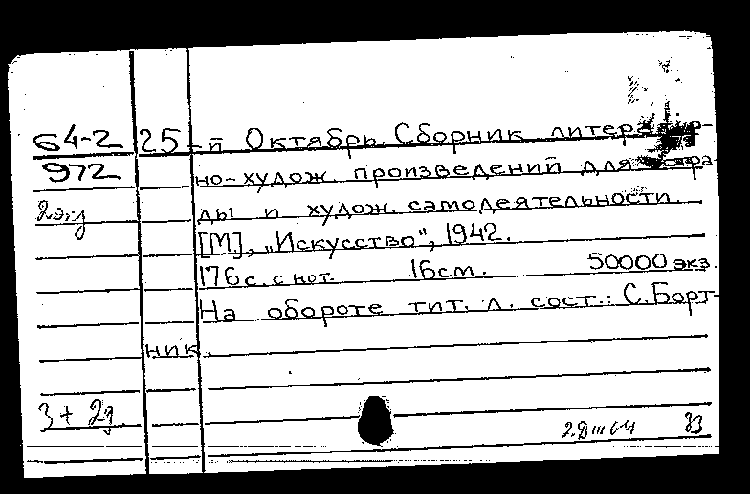 64-2 25-й Октябрь. Сборник литератур-
972 но-худож. произведений для эстра-
2 экз ды и худож. самодеятельности.
[М], „Искусство", 1942.
176 с. с нот. 16 см. 50000 экз.
На обороте тит. л. сост.: С. Борт-
ник.
3 + 2д
33